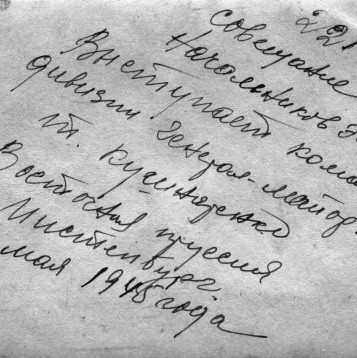 221
совещание
начальников
Выступает кома
дивизии генерал-майор
т. Кушнаренко
Восточная пруссия
Инстенбург
мая 1945 года